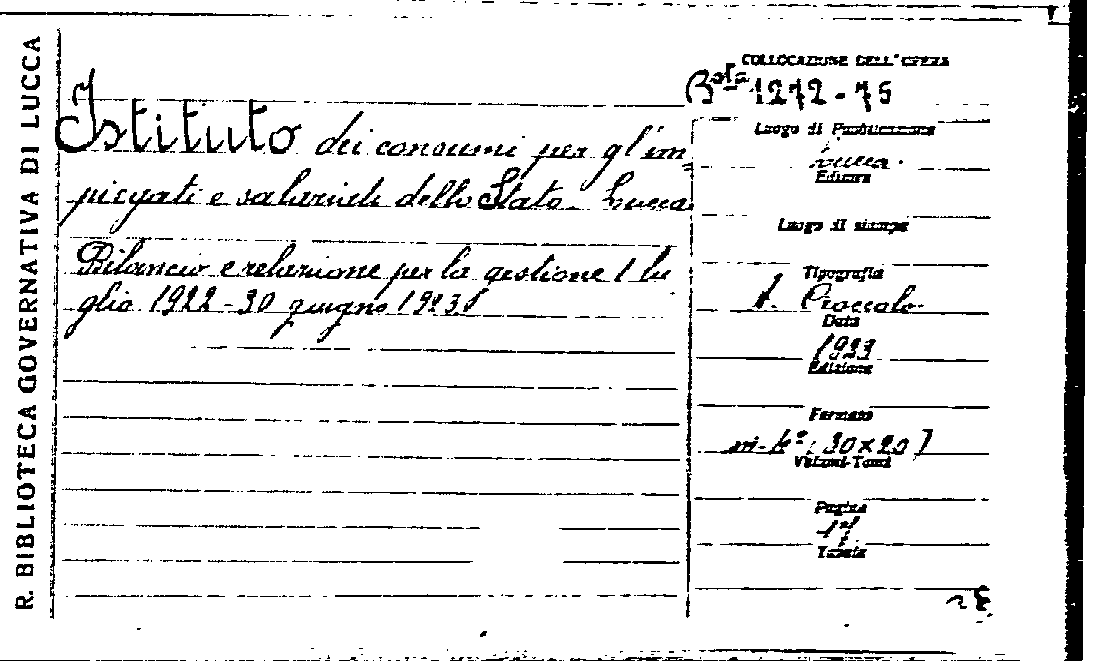 R. BIBLIOTECA GOVERNATIVA DI LUCCA
COLLOCAZIONE DELL'OPERA
Bsta 1272-75
Istituto dei consumi per gl'im
piegati e salariati dello Stato - Lucca
Bilancio e relazione per la gestione 1 lu
glio 1922 - 30 giugno 1923
Luogo di Pubblicazione
Lucca.
Editore
Luogo di stampa
Tipografia
Data
1923
Edizione
Formato
in-4° (30×20)
Volumi-Tomi
Pagine
17
Tavole